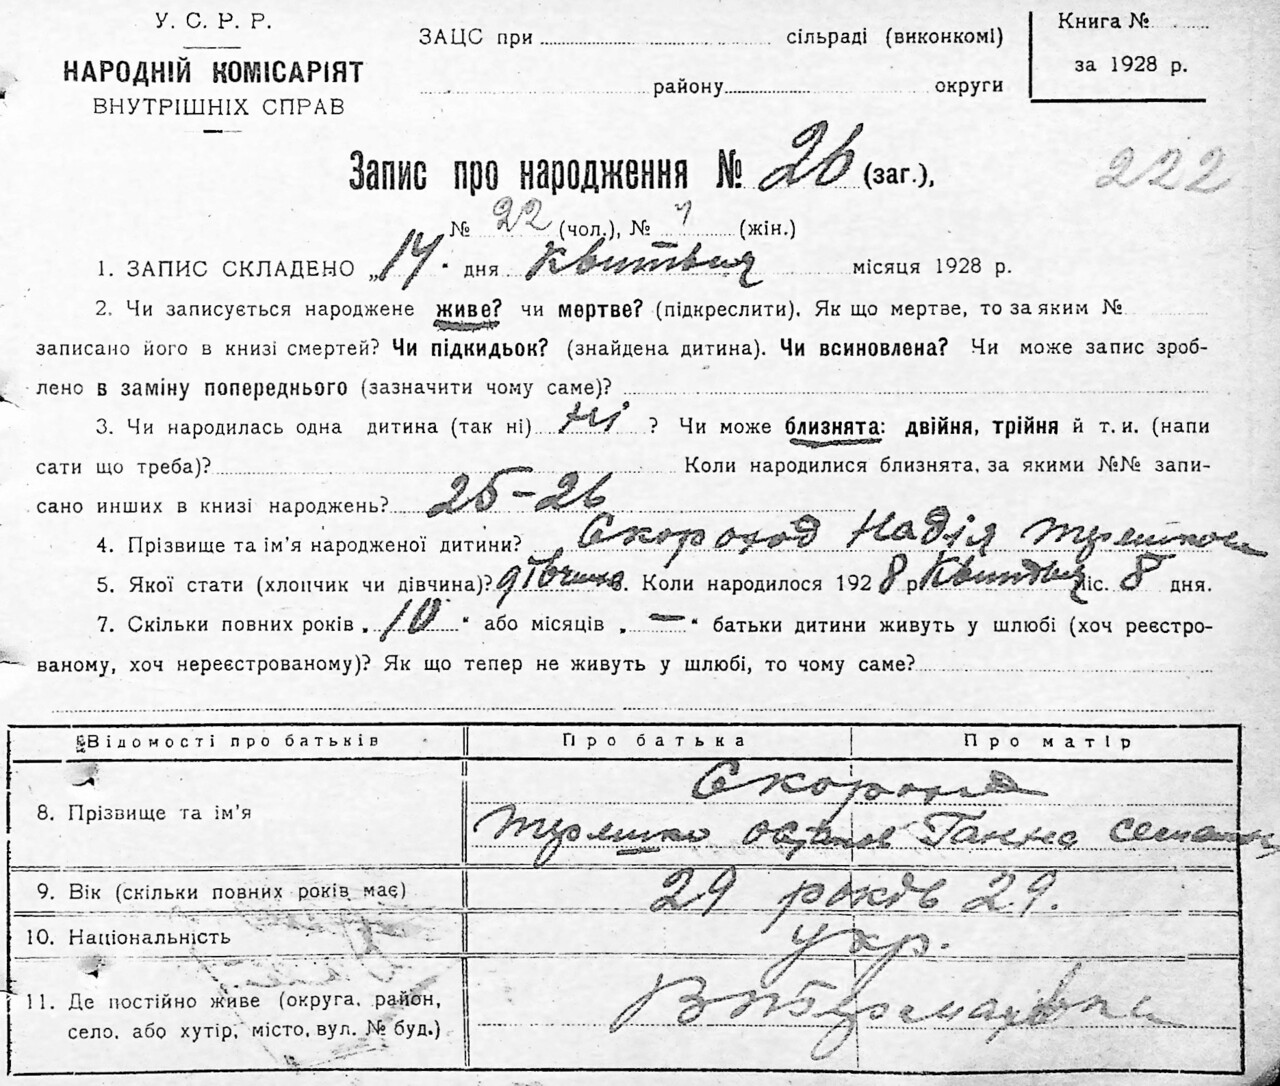 У. С. Р. Р.
НАРОДНІЙ КОМІСАРІЯТ
ВНУТРІШНІХ СПРАВ
ЗАЦС при сільраді (виконкомі)
району округи
Книга №
за 1928 р.
Запис про народження № 26 (заг.),
222
№ 22 (чол.), № (жін.)
1. ЗАПИС СКЛАДЕНО „14" дня Квитвня місяця 1928 р.
2. Чи записується народжене живе? чи мертве? (підкреслити). Як що мертве, то за яким №
записано його в книзі смертей? Чи підкидьок? (знайдена дитина). Чи всиновлена? Чи може запис зроб-
лено в заміну попереднього (зазначити чому саме)?
3. Чи народилась одна дитина (так ні) ні ? Чи може близнята: двійня, трійня й т. и. (напи
сати що треба)? Коли народилися близнята, за якими №№ запи-
сано инших в книзі народжень? 25-26
4. Прізвище та ім'я народженої дитини? Скороход Надія
5. Якої статі (хлопчик чи дівчина)? дівчина. Коли народилося 1928 р. Квитвня міс. 8 дня.
7. Скільки повних років „10" або місяців „—" батьки дитини живуть у шлюбі (хоч реєстро-
ваному, хоч нереєстрованому)? Як що тепер не живуть у шлюбі, то чому саме?
Відомості про батьків Про батька Про матір
Скороход
8. Прізвище та ім'я
Ганна
9. Вік (скільки повних років має) 29 років 29.
10. Національність укр.
11. Де постійно живе (округа, район,
село, або хутір, місто, вул. № буд.)